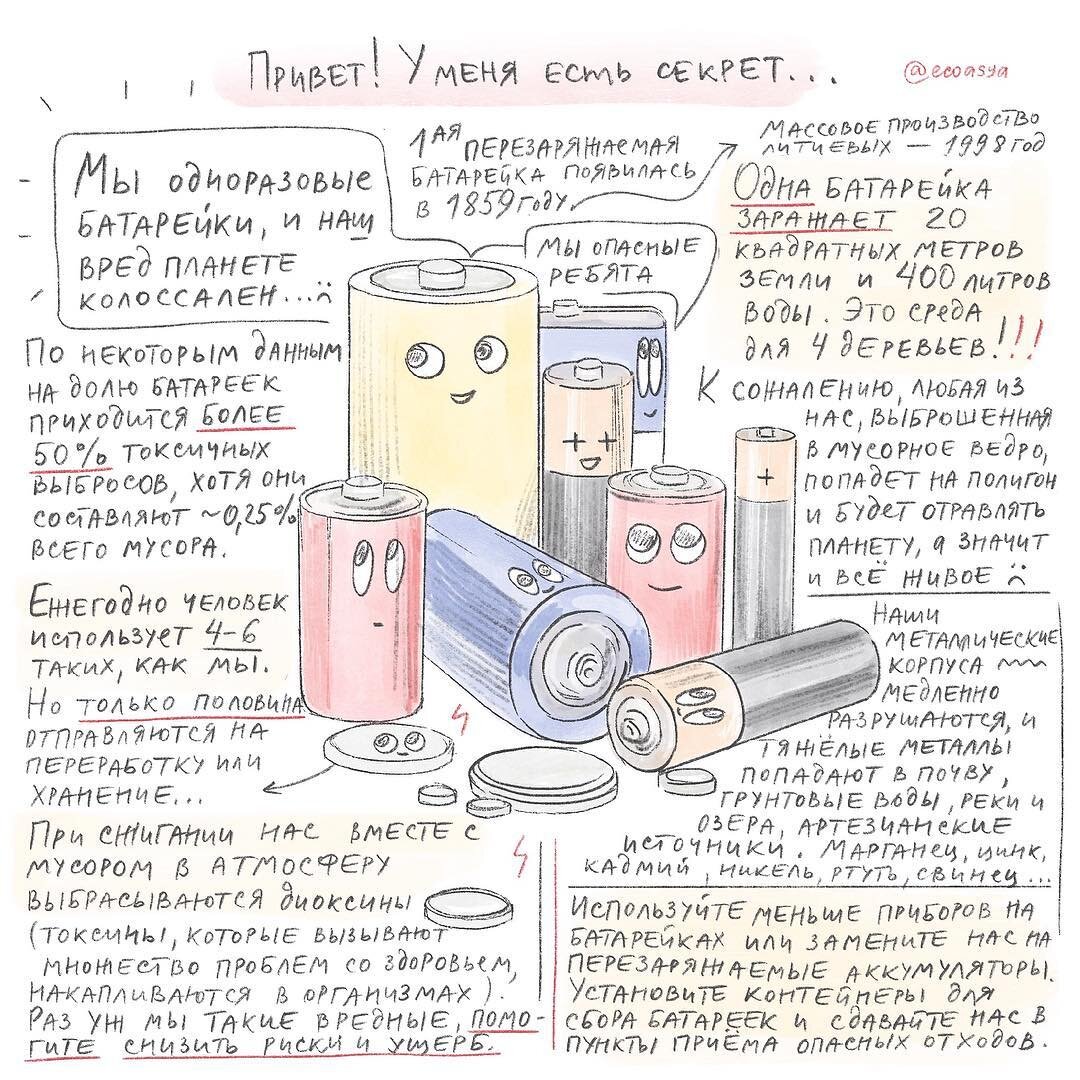 Привет! У меня есть секрет...
@ecoasya
Мы одноразовые
батарейки, и наш
вред планете
колоссален...
1ая перезаряжаемая
батарейка появилась
в 1859 году.
Массовое производство
литиевых — 1998 год
Мы опасные
ребята
Одна батарейка
заражает 20
квадратных метров
земли и 400 литров
воды. Это среда
для 4 деревьев!!!
По некоторым данным
на долю батареек
приходится более
50% токсичных
выбросов, хотя они
составляют ~0,25%
всего мусора.
К сожалению, любая из
нас, выброшенная
в мусорное ведро,
попадет на полигон
и будет отравлять
планету, а значит
и всё живое
Ежегодно человек
использует 4-6
таких, как мы.
Но только половина
отправляются на
переработку или
хранение...
Наши
металлические
корпуса
медленно
разрушаются, и
тяжёлые металлы
попадают в почву,
грунтовые воды, реки и
озера, артезианские
источники. Марганец, цинк,
кадмий, никель, ртуть, свинец...
При сжигании нас вместе с
мусором в атмосферу
выбрасываются диоксины
(токсины, которые вызывают
множество проблем со здоровьем,
накапливаются в организмах).
Раз уж мы такие вредные, помо-
гите снизить риски и ущерб.
Используйте меньше приборов на
батарейках или замените нас на
перезаряжаемые аккумуляторы.
Установите контейнеры для
сбора батареек и сдавайте нас в
пункты приёма опасных отходов.